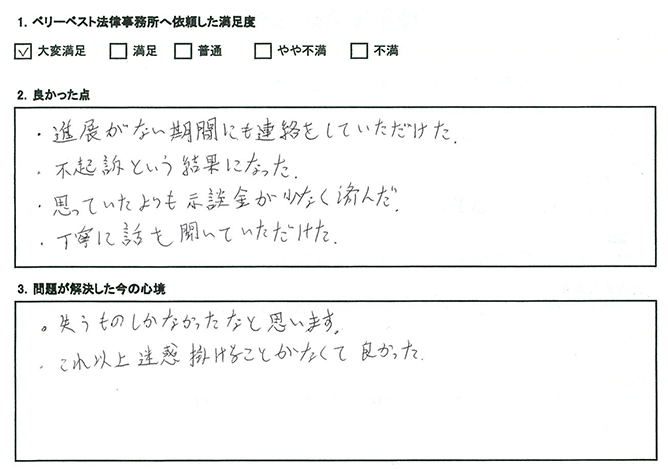 1. ベリーベスト法律事務所へ依頼した満足度
☑ 大変満足 □ 満足 □ 普通 □ やや不満 □ 不満
2. 良かった点
・進展がない期間にも連絡をしていただけた.
・不起訴という結果になった.
・思っていたよりも示談金が少なく済んだ.
・丁寧に話も聞いていただけた.
3. 問題が解決した今の心境
。失うものしかなかったなと思います。
・これ以上迷惑掛けることがなくて良かった.